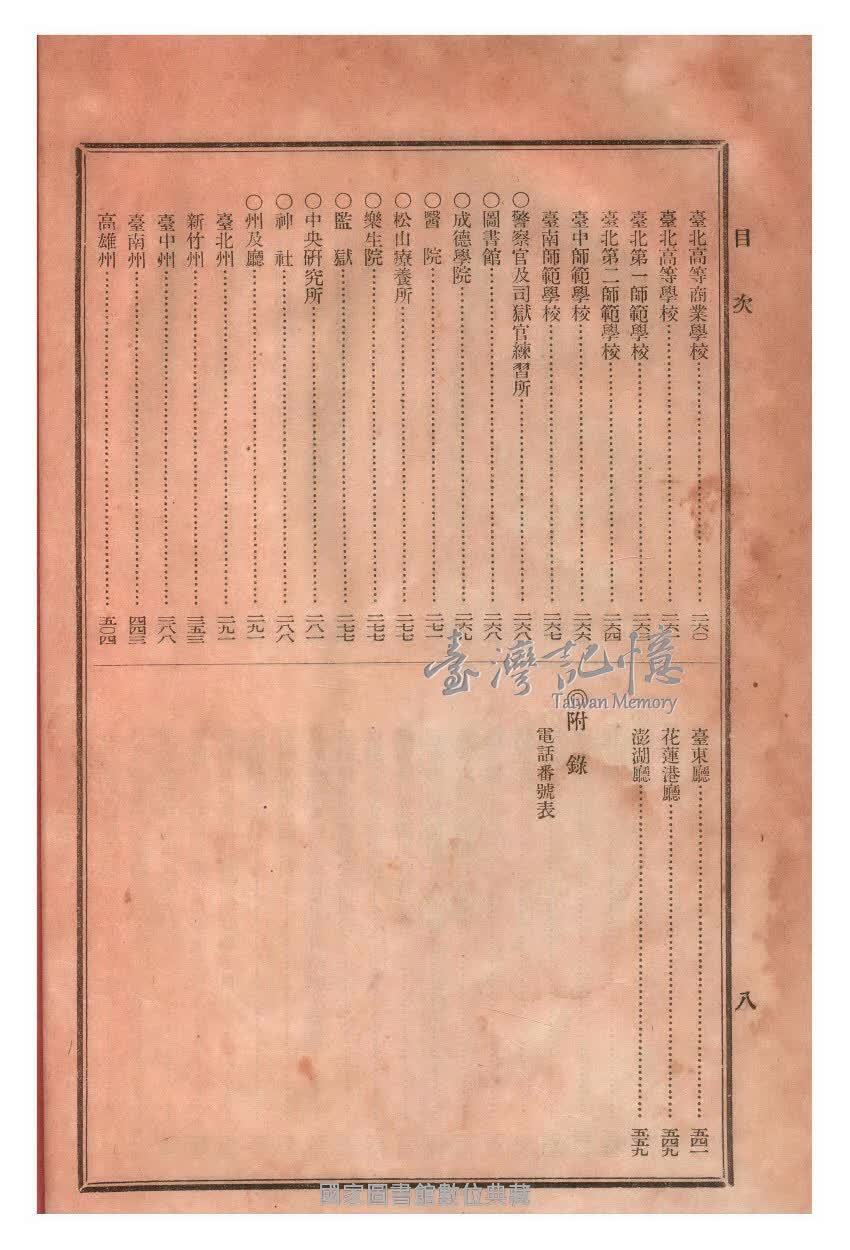 目次
八
臺北高等商業學校……二六〇
臺北高等學校……二六一
臺北第一師範學校……二六三
臺北第二師範學校……二六四
臺中師範學校……二六六
臺南師範學校……二六七
〇警察官及司獄官練習所……二六八
〇圖書館……二六八
〇成德學院……二六九
〇醫院……二七一
〇松山療養所……二七七
〇樂生院……二七七
〇監獄……二七七
〇中央硏究所……二八一
〇神社……二八八
〇州及廳……二九一
臺北州……二九一
新竹州……三五三
臺中州……三八八
臺南州……四四三
高雄州……五〇四
臺東廳……五四一
花蓮港廳……五四九
澎湖廳……五五九
附錄
電話番號表
臺灣記憶
Taiwan Memory
國家圖書館數位典藏